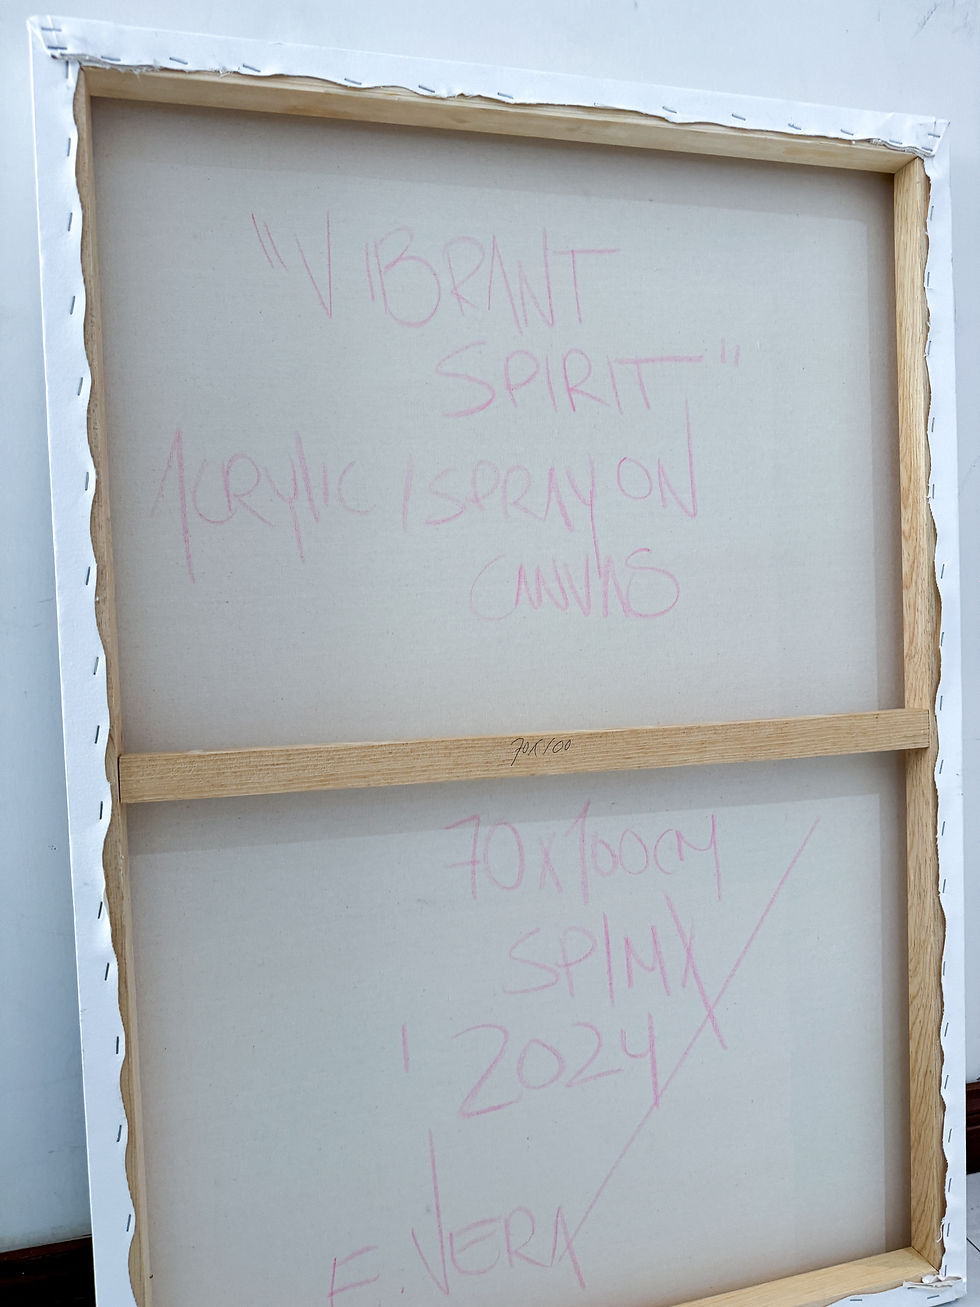 "VIBRANT
SPIRIT"
ACRYLIC / SPRAY ON
CANVAS
70X100
70X100CM
SPIMX
'2024
F. VERA